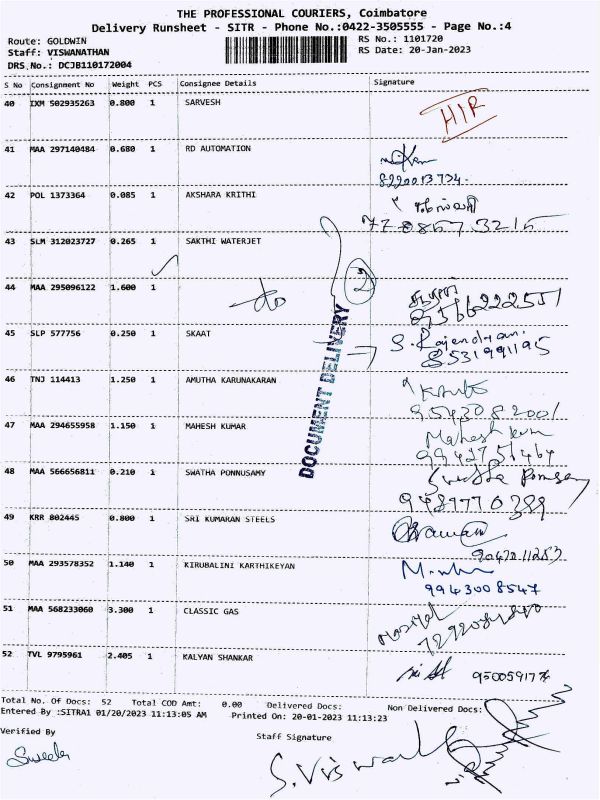 THE PROFESSIONAL COURIERS, Coimbatore
Delivery Runsheet - SITR - Phone No.:0422-3505555 - Page No.:4
Route: GOLDWIN RS No.: 1101720
Staff: VISWANATHAN RS Date: 20-Jan-2023
DRS No.: DCJB110172004
S No Consignment No Weight PCS Consignee Details Signature
40 IXM 502935263 0.800 1 SARVESH
41 MAA 297140484 0.680 1 RD AUTOMATION
8220013734
42 POL 1373364 0.085 1 AKSHARA KRITHI
43 SLM 312023727 0.265 1 SAKTHI WATERJET
2
44 MAA 295096122 1.600 1
DOCUMENT DELIVERY
45 SLP 577756 0.250 1 SKAAT S. Rajendran
8531991195
46 TNJ 114413 1.250 1 AMUTHA KARUNAKARAN
9543082001
47 MAA 294655958 1.150 1 MAHESH KUMAR Mahesh kum
48 MAA 566656811 0.210 1 SWATHA PONNUSAMY
9489770389
49 KRR 802445 0.800 1 SRI KUMARAN STEELS
50 MAA 293578352 1.140 1 KIRUBALINI KARTHIKEYAN
9943008547
51 MAA 568233060 3.300 1 CLASSIC GAS
52 TVL 9795961 2.405 1 KALYAN SHANKAR
Total No. Of Docs: 52 Total COD Amt: 0.00 Delivered Docs: Non Delivered Docs:
Entered By :SITRA1 01/20/2023 11:13:05 AM Printed On: 20-01-2023 11:13:23
Verified By Staff Signature
S. Viswa